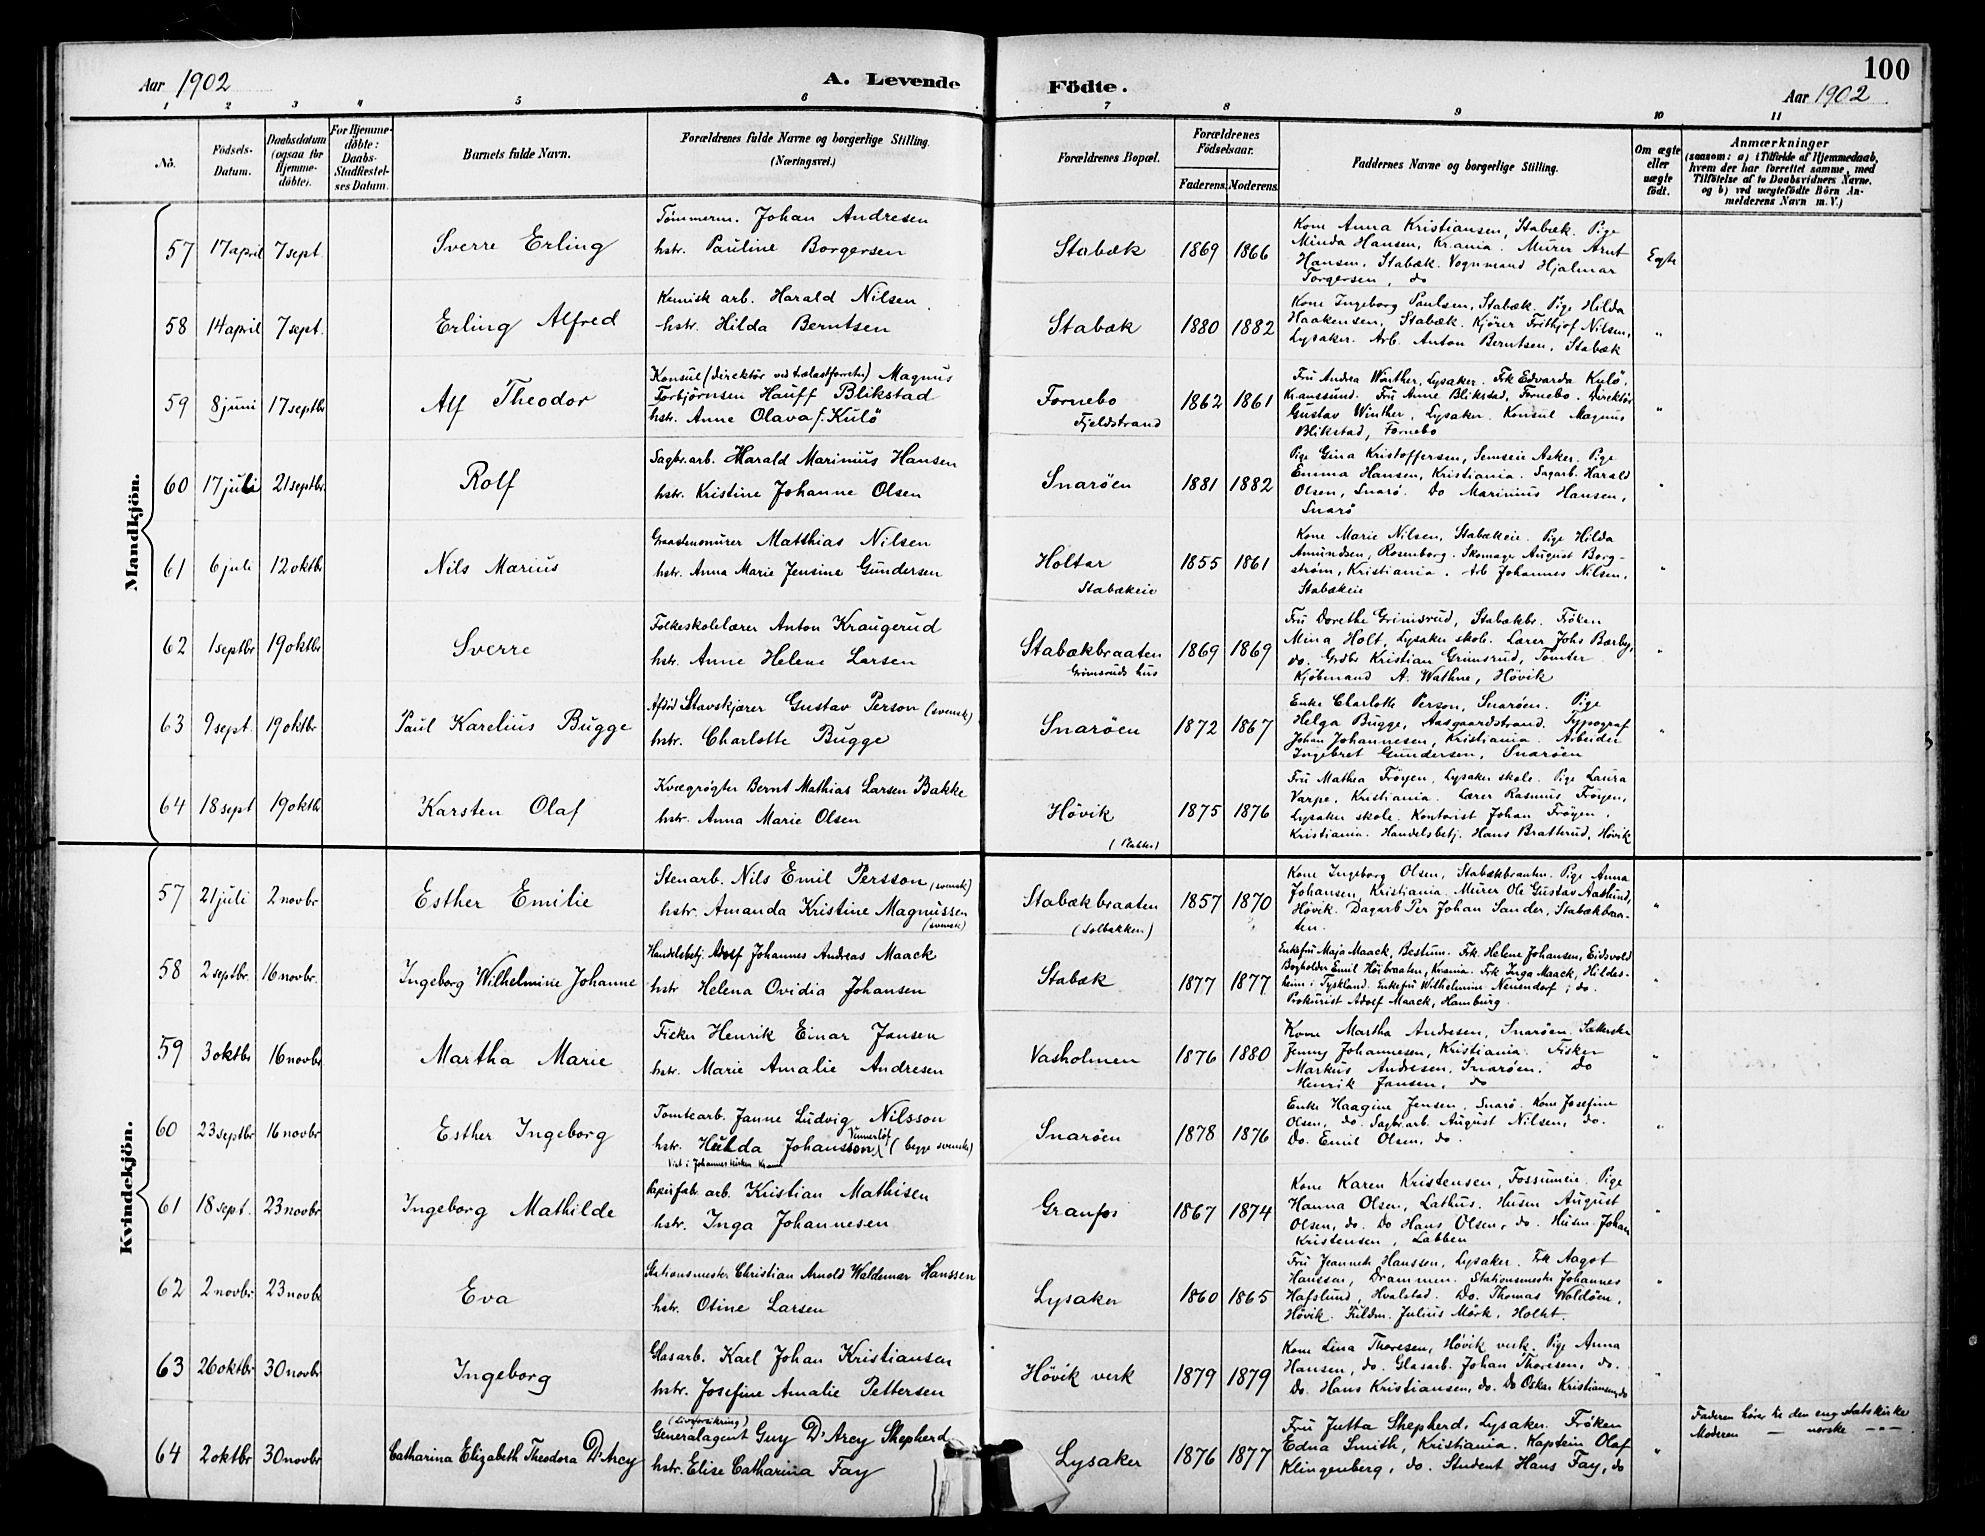 Aar 1902
A. Levende
Födte.
100
Aar 1902
1 2 3 4 5 6 7 8 9 10 11
No.
Födsels-
Datum.
Daabsdatum
(ogsaa for
Hjemme-
döbte).
For Hjemme-
döbte:
Daabs-
Stadfestel-
ses Datum.
Barnets fulde Navn.
Forældrenes fulde Navne og borgerlige Stilling.
(Næringsvei.)
Forældrenes Bopæl.
Forældrenes
Födselsaar.
Faderens. Moderens.
Faddernes Navne og borgerlige Stilling.
Om ægte
eller
uægte
födt.
Anmærkninger
(saasom: a) i Tilfælde af Hjemmedaab,
hvem der har forrettet samme, med
Tilföielse af to Daabsvidners Navne,
og b) ved uægtefödte Börn An-
melderens Navn m. V.)
Mandkjön.
57 17 april 7 sept. Sverre Erling
Tömmerm. Johan Andresen
hstr. Pauline Borgersen
Stabæk 1869 1866
Kone Anna Kristiansen, Stabæk. Pige
Minda Hansen, Krania. Murer Arnt
Hansen, Stabæk. Vognmand Hjalmar
Torgersen, do
Egte
58 14 april 7 sept. Erling Alfred
Kemisk arb. Harald Nilsen
hstr. Hilda Berntsen
Stabæk 1880 1882
Kone Ingeborg Paulsen, Stabæk. Pige Hilda
Haakensen, Stabæk. Kjörer Frithjof Nilsen,
Lysaker. Arb. Anton Berntsen, Stabæk
"
59 8 juni 17 septbr Alf Theodor
Konsul (direktör ved trælastforretn) Magnus
Torbjörnsen Hauff Blikstad
hstr. Anne Olava f. Kulö
Fornebo
Fjeldstrand
1862 1861
Fru Andrea Winther, Lysaker. Frk Edvarda Kulö,
Kranssund. Fru Anne Blikstad, Fornebo. Direktör
Gustav Winther, Lysaker. Konsul Magnus
Blikstad, Fornebo
"
60 17 juli 21 septbr. Rolf
Sagbr. arb. Harald Marinius Hansen
hstr. Kristine Johanne Olsen
Snaröen 1881 1882
Pige Gina Kristoffersen, Semseie Asker. Pige
Emma Hansen, Kristiania. Sagarb. Harald
Olsen, Snarö. Do Marinius Hansen,
Snarö
"
61 6 juli 12 oktbr Nils Marius
Graastensmurer Matthias Nilsen
hstr. Anna Marie Jensine Gundersen
Holtar
Stabækeie
1855 1861
Kone Marie Nilsen, Stabækeie. Pige Hilda
Amundsen, Rosenborg. Skomage August Borg-
ström, Kristiania. Arb Johannes Nilsen,
Stabækeie
"
62 1 septbr 19 oktbr Sverre
Folkeskolelærer Anton Kraugerud
hstr. Anne Helene Larsen
Stabækbraaten
Grimsruds hus
1869 1869
Fru Dorethe Grimsrud, Stabækbr. Fröken
Mina Holt, Lysaker skole. Lærer Johs Barby,
do. Grdbr Kristian Grimsrud, Tomter
Kjöbmand A. Wathne, Hövik
"
63 9 sept. 19 oktbr. Paul Karelius Bugge
Afdöd Stavskjærer Gustav Person (svensk)
hstr. Charlotte Bugge
Snaröen 1872 1867
Enke Charlotte Person, Snaröen. Pige
Helga Bugge, Aasgaardstrand. Typograf
Johan Johannesen, Kristiania. Arbeider
Ingebret Gundersen, Snaröen
"
64 18 sept 19 oktb Karsten Olaf
Kvægrögter Bernt Mathias Larsen Bakke
hstr. Anna Marie Olsen
Hövik
1875 1876
Fru Mathea Fröyen, Lysaker skole. Pige Laura
Varpe, Kristiania. Lærer Rasmus Fröyen,
Lysaker skole. Kontorist Johan Fröyen,
Kristiania. Handelsbetj. Hans Bratterud, Hövik
Kvindekjön.
57 21 juli 2 novbr Esther Emilie
Stenarb. Nils Emil Persson (svensk)
hstr. Amanda Kristine Magnussen
(svensk)
Stabækbraaten
(Solbakken)
1857 1870
Kone Ingeborg Olsen, Stabækbraaten. Pige Anna
Johansen, Kristiania. Murer Ole Gustav Aaslund,
Hövik. Dagarb Per Johan Sander, Stabækbraa-
ten.
"
58 2 septbr. 16 novbr. Ingeborg Wilhelmine Johanne
Handelsbetj. Adolf Johannes Andreas Maack
hstr Helena Ovidia Johansen
Stabæk 1877 1877
Enkefru Maja Maack, Bestum. Frk. Helene Johansen, Eidsvold
Bogholder Emil Höibraaten, Krania. Frk Inga Maack, Hildes-
heim i Tyskland. Enkefru Wilhelmine Neuendorf, do.
Prokurist Adolf Maack, Hamburg.
"
59 3 oktbr 16 novbr Martha Marie
Fisker Henrik Einar Jansen
hstr. Marie Amalie Andresen
Vasholmen 1876 1880
Kone Martha Andresen, Snaröen.
Jenny Johannesen, Kristiania. Fisker
Markus Andresen, Snaröen. Do
Henrik Jansen, do
"
60 23 septbr 16 novbr Esther Ingeborg
Tomtearb. Janne Ludvig Nilsson
hstr. Hulda Johansson, (begge svenske)
Viet i Johannes kirken Krania
Snaröen 1878 1876
Enke Haagine Jensen, Snarö. Kone Josefine
Olsen, do. Sagbr. arb. August Nilsen, do.
Do. Emil Olsen, do.
"
61 18 sept. 23 novbr Ingeborg Mathilde
Papirfabr. arb. Kristian Mathisen
hstr. Inga Johannesen
Granfos 1867 1874
Kone Karen Kristensen, Fossumeie. Pige
Hanna Olsen, Lathus. Husm August
Olsen, do. Do Hans Olsen, do. Husm. Johan
Kristensen, Labben
"
62 2 novbr 23 novbr Eva
Stationsmester Christian Arnold Waldemar Hanssen
hstr. Otine Larsen
Lysaker 1860 1865
Fru Jeanneth Hanssen, Lysaker. Frk Aagot
Hanssen, Drammen. Stationsmester Johannes
Hafslund, Hvalstad. Do. Thomas Waldöen,
Hövik. Fuldm. Julius Mörk, Holkt.
"
63 26 oktbr 30 novbr Ingeborg
Glasarb. Karl Johan Kristiansen
hstr. Josefine Amalie Pettersen
Hövik verk 1879 1879
Kone Lina Thoresen, Hövik verk. Pige Anna
Hansen, do. Glasarb. Johan Thoresen, do.
Do. Hans Kristiansen, do. Do Oskar Kristiansen, do
"
64 2 oktbr 30 novbr Catharina Elizabeth Theodora D'Arcy
(Livsforsikring)
Generalagent Guy D'Arcy Shepherd
hstr. Elise Catharina Fay
Lysaker 1876 1877
Fru Jutta Shepherd, Lysaker. Fröken
Edna Smith, Kristiania. Kaptein Olaf
Klingenberg, do. Student Hans Fay, do
"
Faderen hörer til den eng statskirke
Moderen — norske — " —